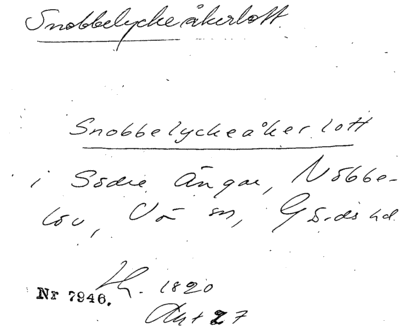 Snobbelyckeåkerlott
Snobbelyckeåkerlott
i Södre Ängar, Nöbbe-
löv, Vä sn, Gärds hd
Lh. 1820
Nr 7946.
Akt 27